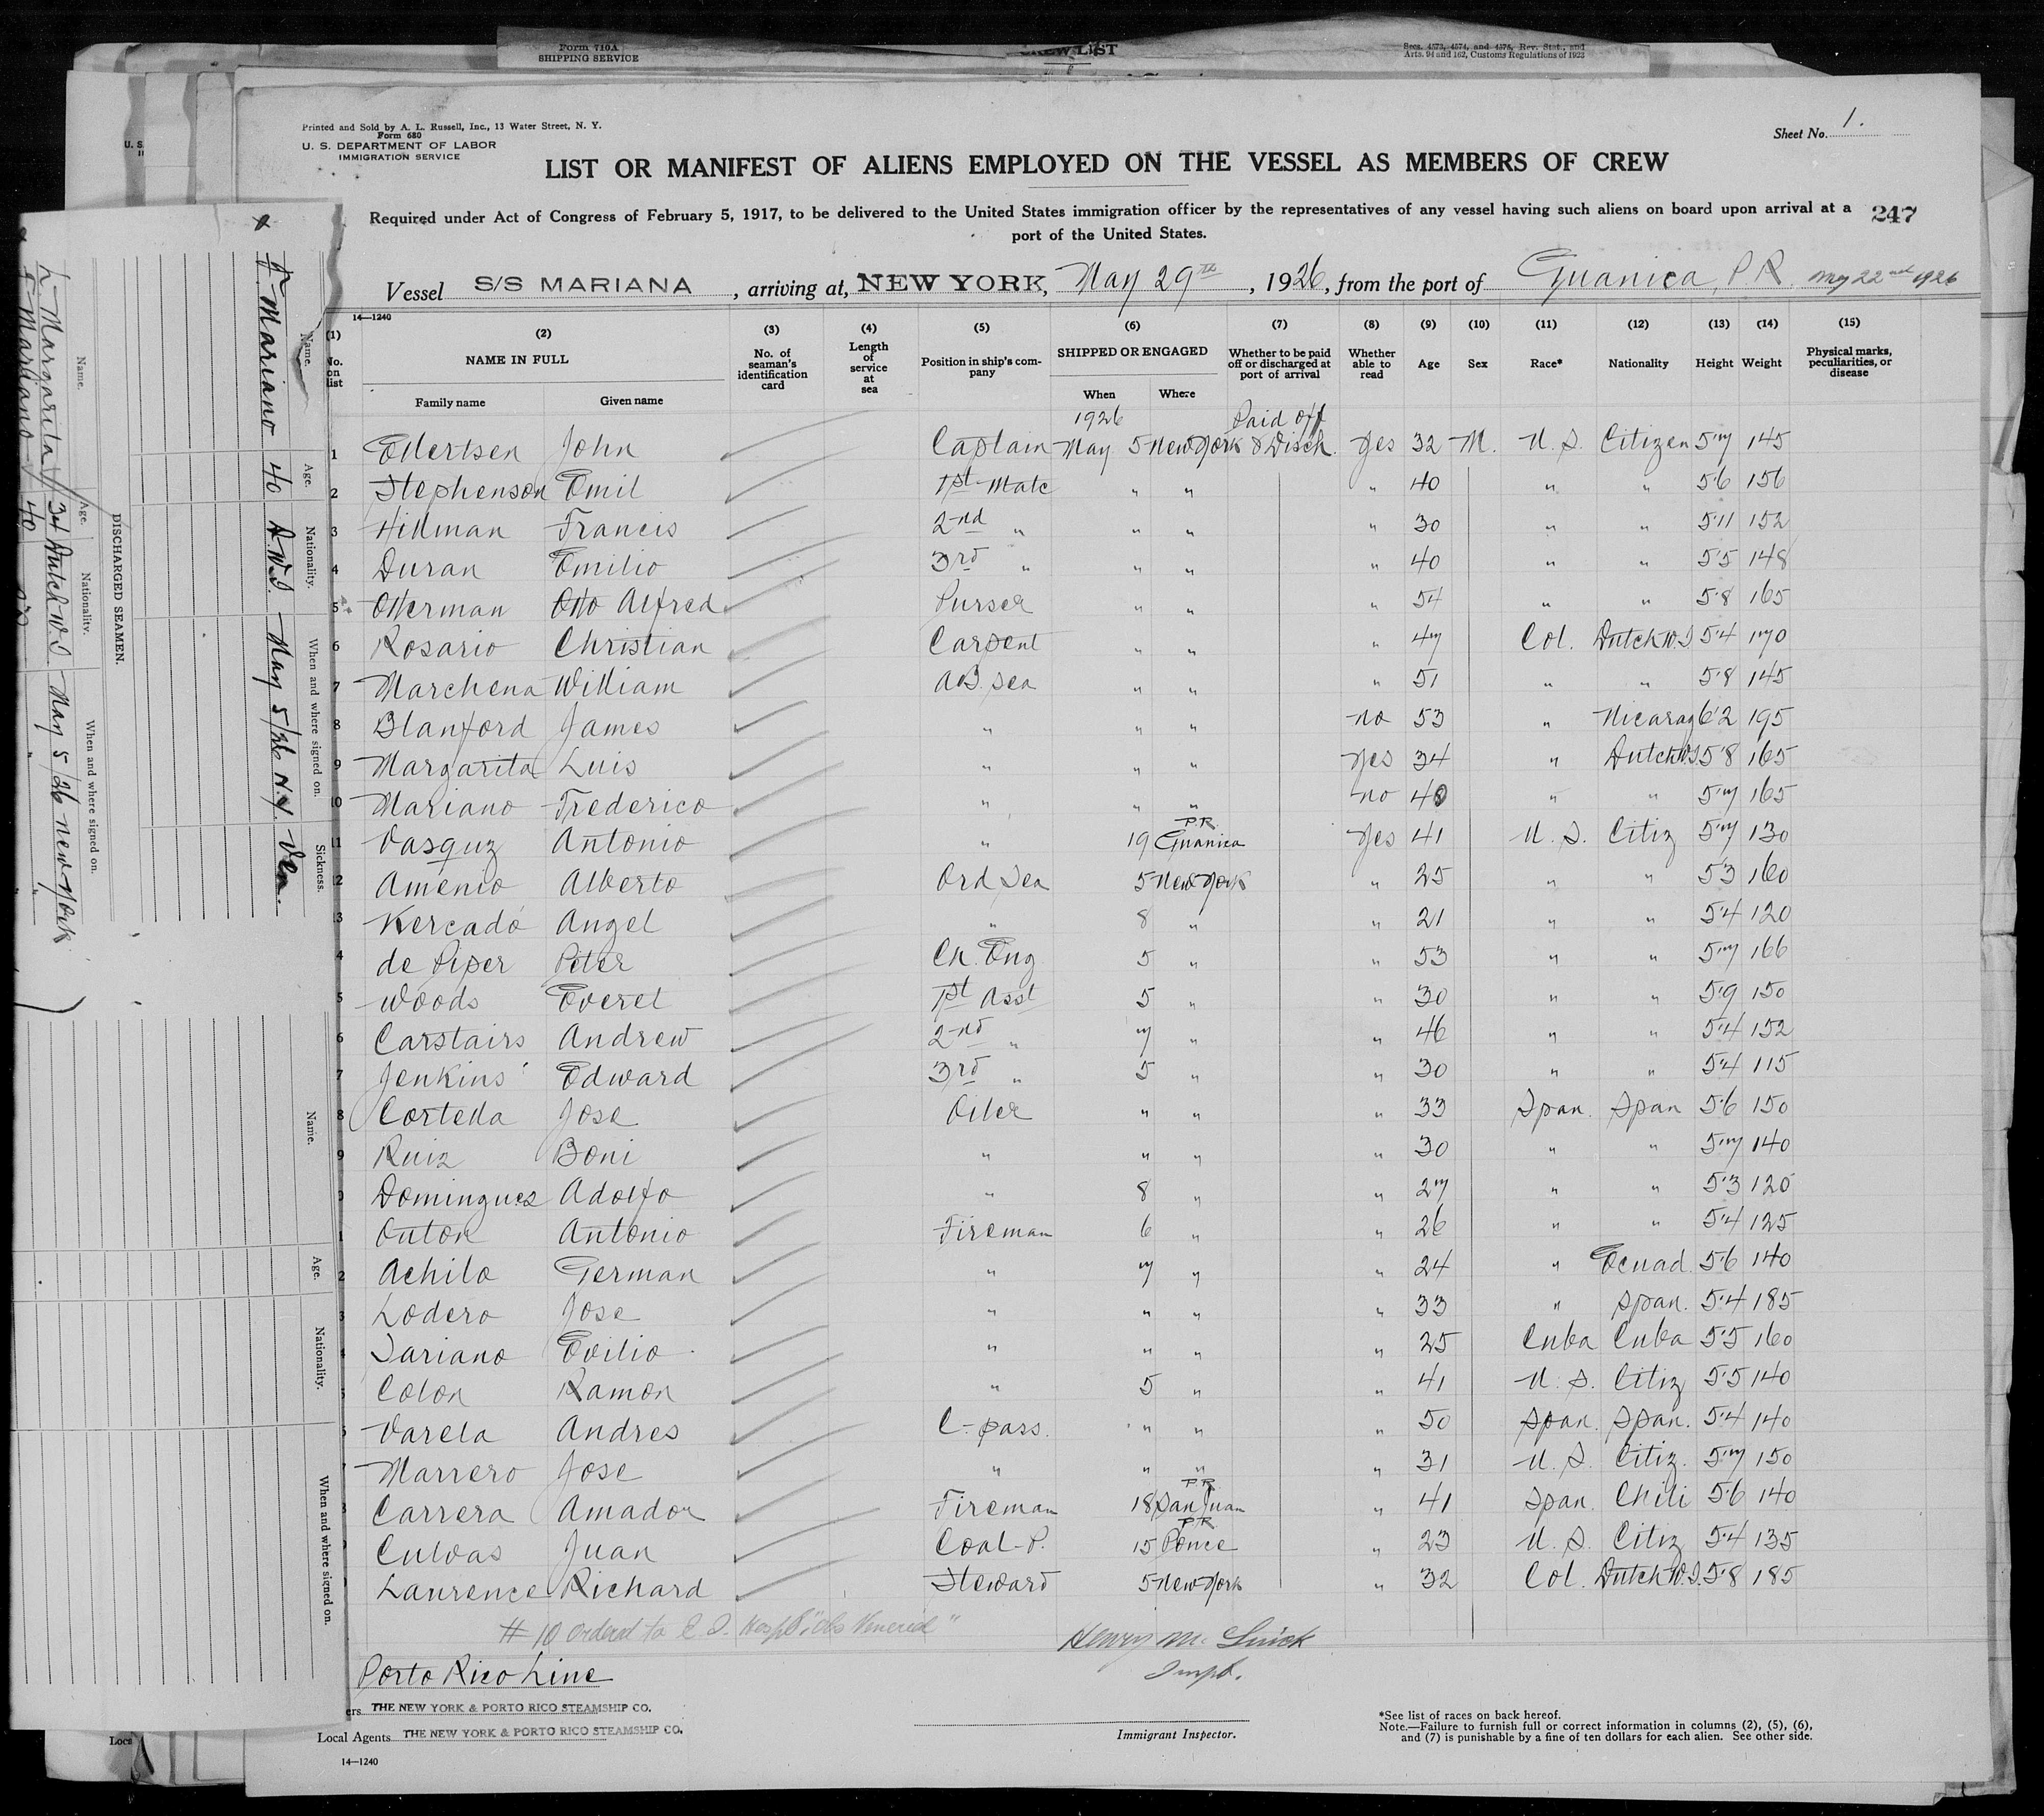 Form 710A
SHIPPING SERVICE
CREW LIST
Secs. 4573, 4574, and 4576, Rev. Stat., and
Arts. 94 and 162, Customs Regulations of 1923
Printed and Sold by A. L. Russell, Inc., 13 Water Street, N. Y.
Form 680
U. S. DEPARTMENT OF LABOR
IMMIGRATION SERVICE
Sheet No. 1.
LIST OR MANIFEST OF ALIENS EMPLOYED ON THE VESSEL AS MEMBERS OF CREW
Required under Act of Congress of February 5, 1917, to be delivered to the United States immigration officer by the representatives of any vessel having such aliens on board upon arrival at a
port of the United States.
247
Vessel S/S MARIANA, arriving at, NEW YORK, May 29th, 1926, from the port of Guanica, P.R. May 22nd 1926
14—1240
(1) (2) (3) (4) (5) (6) (7) (8) (9) (10) (11) (12) (13) (14) (15)
No. on list
NAME IN FULL
Family name Given name
No. of seaman's identification card
Length of service at sea
Position in ship's company
SHIPPED OR ENGAGED
When Where
Whether to be paid off or discharged at port of arrival
Whether able to read
Age Sex Race* Nationality Height Weight
Physical marks, peculiarities, or disease
1926 Paid off
1 Ellertsen John Captain May 5 New York & Disch. yes 32 M. U.S. Citizen 5'7 145
2 Stephenson Emil 1st Mate " " " 40 " " 5'6 156
3 Hillman Francis 2nd " " " " 30 " " 5'11 152
4 Duran Emilio 3rd " " " " 40 " " 5'5 148
5 Otterman Otto Alfred Purser " " " 54 " " 5'8 165
6 Rosario Christian Carpent " " " 47 Col. Dutch W.I. 5'4 170
7 Marchena William AB Sea " " " 51 " " 5'8 145
8 Blanford James " " " no 53 " Nicarag 6'2 195
9 Margarita Luis " " " yes 34 " Dutch W.I. 5'8 165
10 Mariano Frederico " " " no 40 " " 5'7 165
11 Vasquz Antonio " 19 Guanica P.R. yes 41 U.S. Citiz 5'7 130
12 Amenio Alberto Ord Sea 5 New York " 25 " " 5'3 160
3 Kercado Angel " 8 " " 21 " " 5'4 120
4 de Piper Peter Ch. Eng 5 " " 53 " " 5'7 166
5 Woods Everet 1st Asst 5 " " 30 " " 5'9 150
6 Carstairs Andrew 2nd " 7 " " 46 " " 5'4 152
7 Jenkins Edward 3rd " 5 " " 30 " " 5'4 115
8 Cortella Jose Oiler " " " 33 Span. Span 5'6 150
9 Ruiz Boni " " " " 30 " " 5'7 140
0 Domingues Adolfo " 8 " " 27 " " 5'3 120
1 Outon Antonio Fireman 6 " " 26 " " 5'4 125
2 Achilo German " 7 " " 24 " Ecuad. 5'6 140
3 Lodero Jose " " " " 33 " Span. 5'4 185
4 Sariano Evilio " " " " 25 Cuba Cuba 5'5 160
5 Colon Ramon " 5 " " 41 U.S. Citiz 5'5 140
6 Varela Andres C-pass. " " " 50 Span. Span. 5'4 140
7 Marrero Jose " " " " 31 U.S. Citiz. 5'7 150
8 Carrera Amador Fireman 18 San Juan P.R. " 41 Span. Chili 5'6 140
Culvas Juan Coal-P. 15 Ponce P.R. " 23 U.S. Citiz 5'4 135
Laurence Richard Steward 5 New York " 32 Col. Dutch W.I. 5'8 185
# 10 ordered to E. I. Hosp
Henry Mc.
Insp.
Porto Rico Line
ers THE NEW YORK & PORTO RICO STEAMSHIP CO.
Local Agents THE NEW YORK & PORTO RICO STEAMSHIP CO.
Immigrant Inspector.
*See list of races on back hereof.
Note.—Failure to furnish full or correct information in columns (2), (5), (6),
and (7) is punishable by a fine of ten dollars for each alien. See other side.
14—1240
DISCHARGED SEAMEN.
Name. Age. Nationality. When and where signed on. Sickness.
F Mariano 40 D.W.I. May 5/26 N.Y. Ven.
Name. Age. Nationality. When and where signed on.
L Margarita 34 Dutch W.I. May 5/26 New York
F Mariano 40
Name. Age. Nationality. When and where signed on.